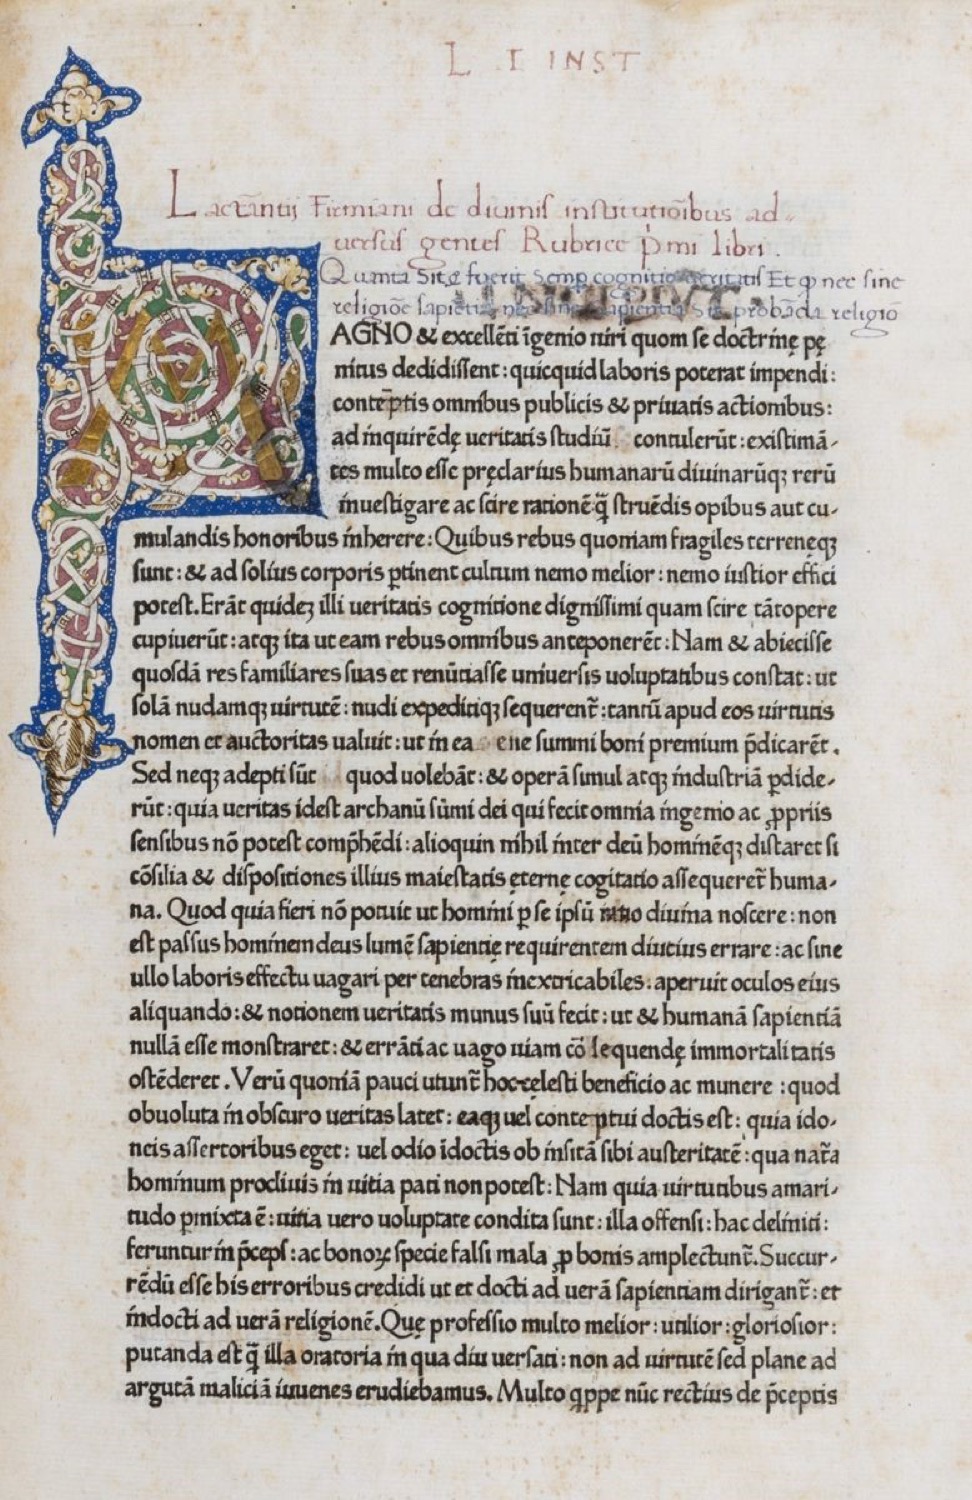 L I INST
Lactātii Firmiani de diuinis institutiōibus ad-
uersus gentes Rubrice p̄mi libri.
Quanta Sit & fuerit Semp cognitio ueritatis Et φ nec sine
religiōe sapiētia nec sine sapientia Sit probāda religio
INCIPIVT.
MAGNO & excellēti īgenio uiri quom se doctrinę pę
nitus dedidissent: quicquid laboris poterat impendi:
contēptis omnibus publicis & priuatis actionibus:
ad inquirēdę ueritatis studiū contulerūt: existimā-
tes multo esse pręclarius humanarū diuinarūqȝ rerū
inuestigare ac scire rationē q̄ struēdis opibus aut cu-
mulandis honoribus inherere: Quibus rebus quoniam fragiles terreneqȝ
sunt: & ad solius corporis ꝑtinent cultum nemo melior: nemo iustior effici
potest. Erāt quideȝ illi ueritatis cognitione dignissimi quam scire tātopere
cupiuerūt: atqȝ ita ut eam rebus omnibus anteponerēt: Nam & abiecisse
quosdā res familiares suas et renūtiasse uniuersis uoluptatibus constat: ut
solā nudamqȝ uirtutē: nudi expeditiqȝ sequerent̄: tantū apud eos uirtutis
nomen et auctoritas ualuit: ut in ea ene summi boni premium p̄dicarēt.
Sed neqȝ adepti sūt quod uolebāt: & operā simul atqȝ industriā ꝑdide-
rūt: quia ueritas idest archanū sūmi dei qui fecit omnia ingenio ac ꝓpriis
sensibus nō potest comp̄hēdi: alioquin nihil inter deū hominēqȝ distaret si
cōsilia & dispositiones illius maiestatis ęternę cogitatio assequeret̄ huma-
na. Quod quia fieri nō potuit ut homini ꝑ se ipsū ratio diuina nosceret: non
est passus hominem deus lumē sapientię requirentem diutius errare: ac sine
ullo laboris effectu uagari per tenebras inextricabiles: aperuit oculos eius
aliquando: & notionem ueritatis munus suū fecit: ut & humanā sapientiā
nullā esse monstraret: & errāti ac uago uiam cō sequendę immortalitatis
ostēderet. Verū quoniā pauci utunt̄ hoc cęlesti beneficio ac munere: quod
obuoluta in obscuro ueritas latet: eaqȝ uel contemptui doctis est: quia ido-
neis assertoribus eget: uel odio īdoctis ob insitā sibi austeritatē: qua nat̄a
hominum procliuis in uitia pati non potest: Nam quia uirtutibus amari-
tudo ꝑmixta ē: uitia uero uoluptate condita sunt: illa offensi: hac deliniti:
feruntur in p̄ceps: ac bonoꝝ specie falsi mala ꝓ bonis amplectunt̄. Succur-
rēdū esse his erroribus credidi ut et docti ad uerā sapientiam dirigant̄: et
indocti ad uerā religionē. Quę professio multo melior: utilior: gloriosior:
putanda est q̄ illa oratoria in qua diu uersati: non ad uirtutē sed plane ad
argutā maliciā iuuenes erudiebamus. Multo qͥppe nūc rectius de p̄ceptis